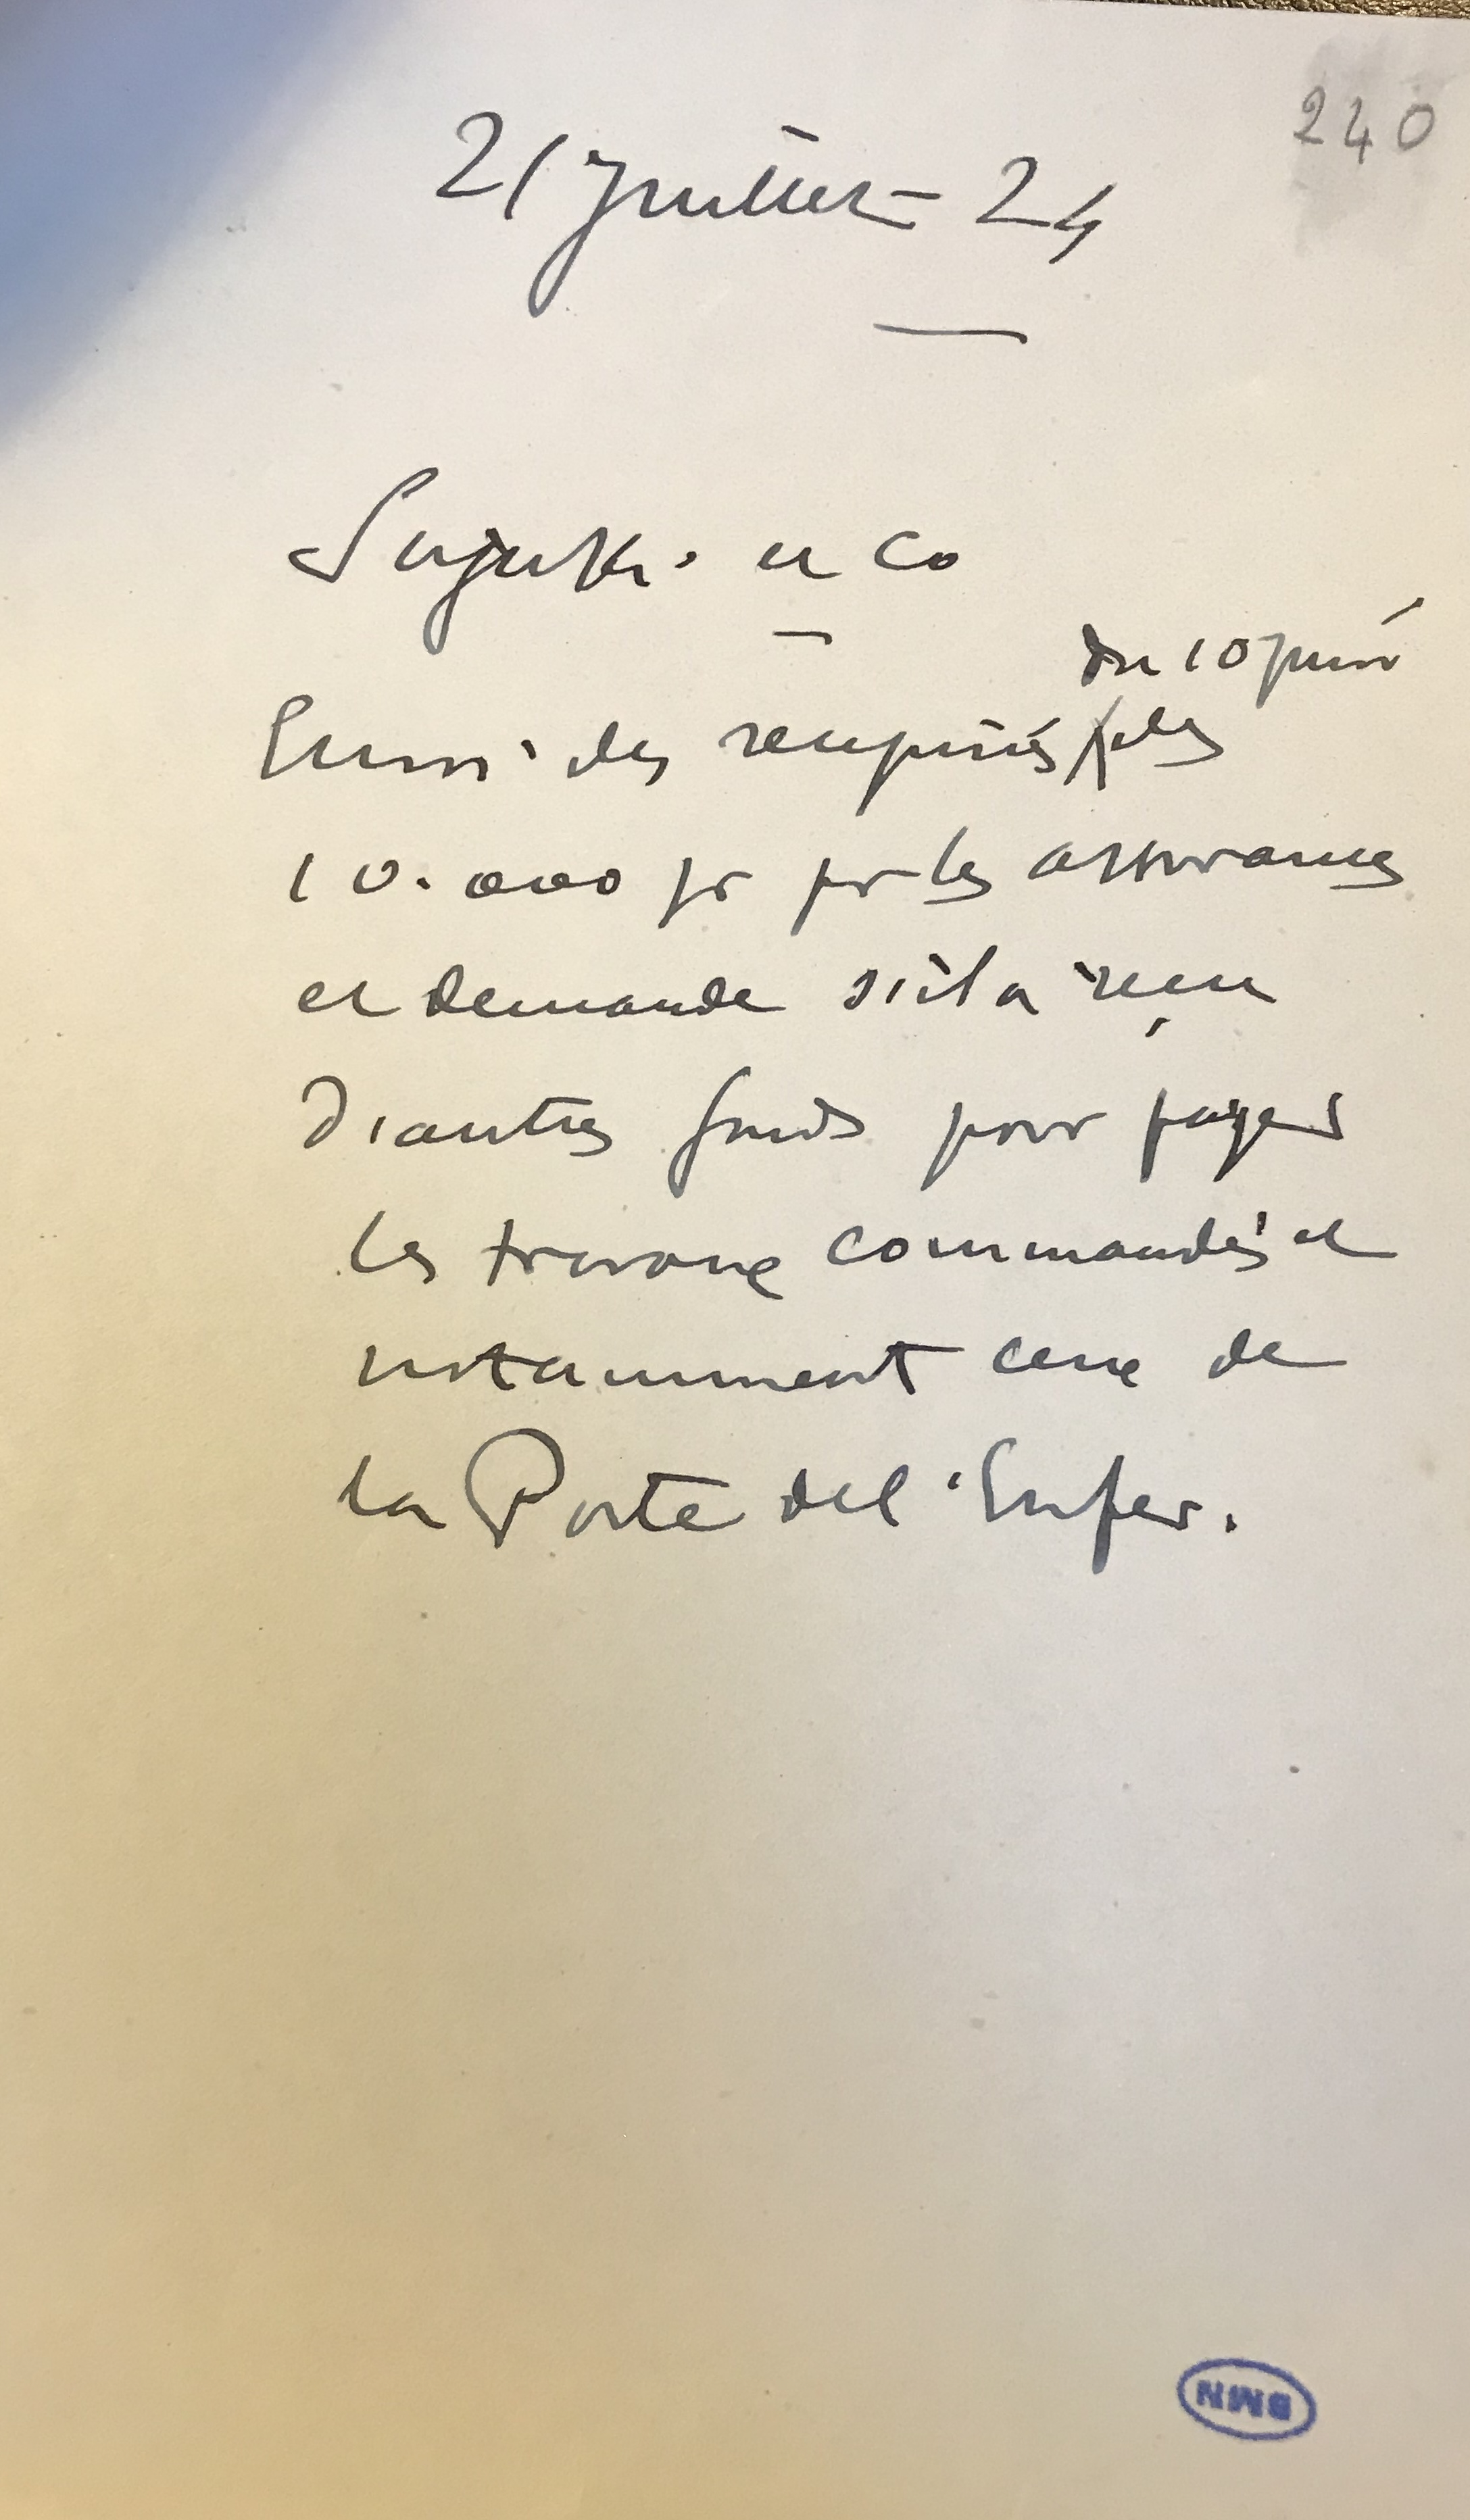 240
21 Juillet - 24
Suzuki et Co
du 10 juin
Envoi des reçus des
10.000 fr pr les assurances
et demande s'il a reçu
d'autres fonds pour payer
les travaux commandés et
notamment ceux de
la Porte de l'Enfer.
BMN